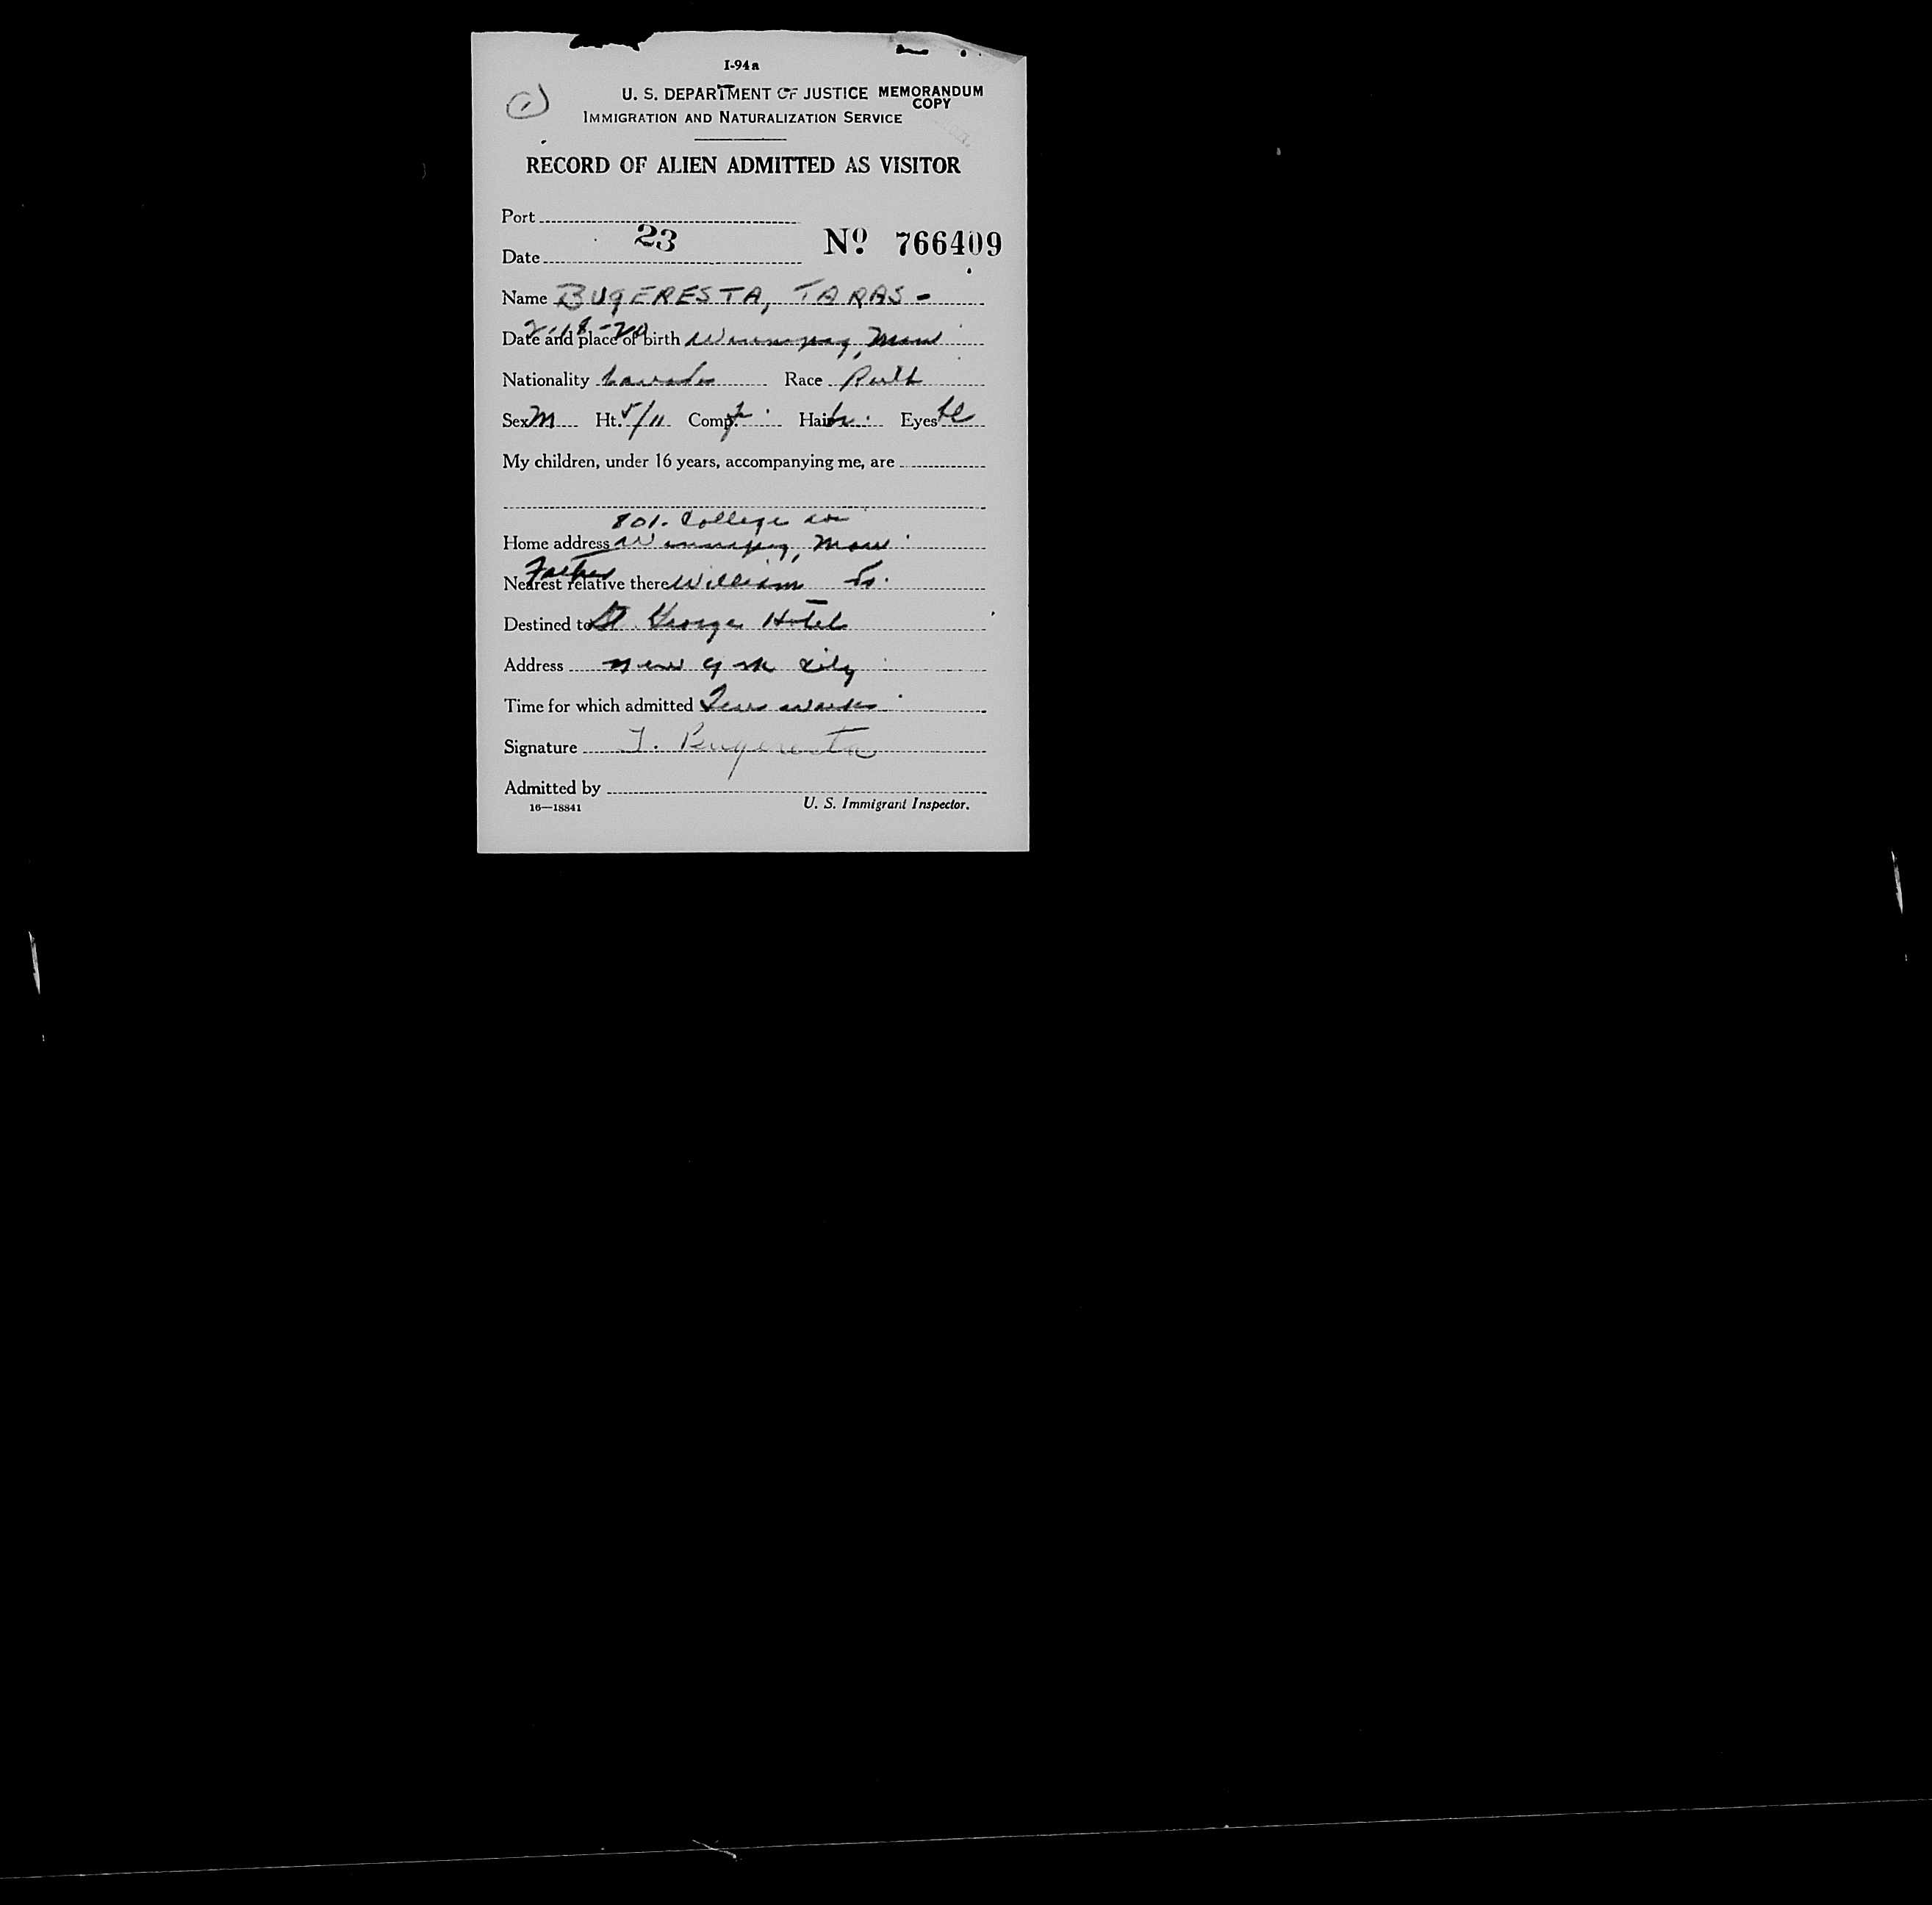 I-94a
U. S. DEPARTMENT OF JUSTICE MEMORANDUM COPY
IMMIGRATION AND NATURALIZATION SERVICE
RECORD OF ALIEN ADMITTED AS VISITOR
Port
23
Date
Nº 766409
Name BUGERESTA, TARAS -
2-18-20
Date and place of birth Winnipeg, Man
Nationality Canada Race Ruth
Sex M Ht. 5/11 Comp. Hair Eyes bl
My children, under 16 years, accompanying me, are
801. College
Home address Winnipeg, Man
Father
Nearest relative there William
Destined to St George Hotel
Address New York City
Time for which admitted weeks
Signature T. Bugeresta
Admitted by
16—18841 U. S. Immigrant Inspector.